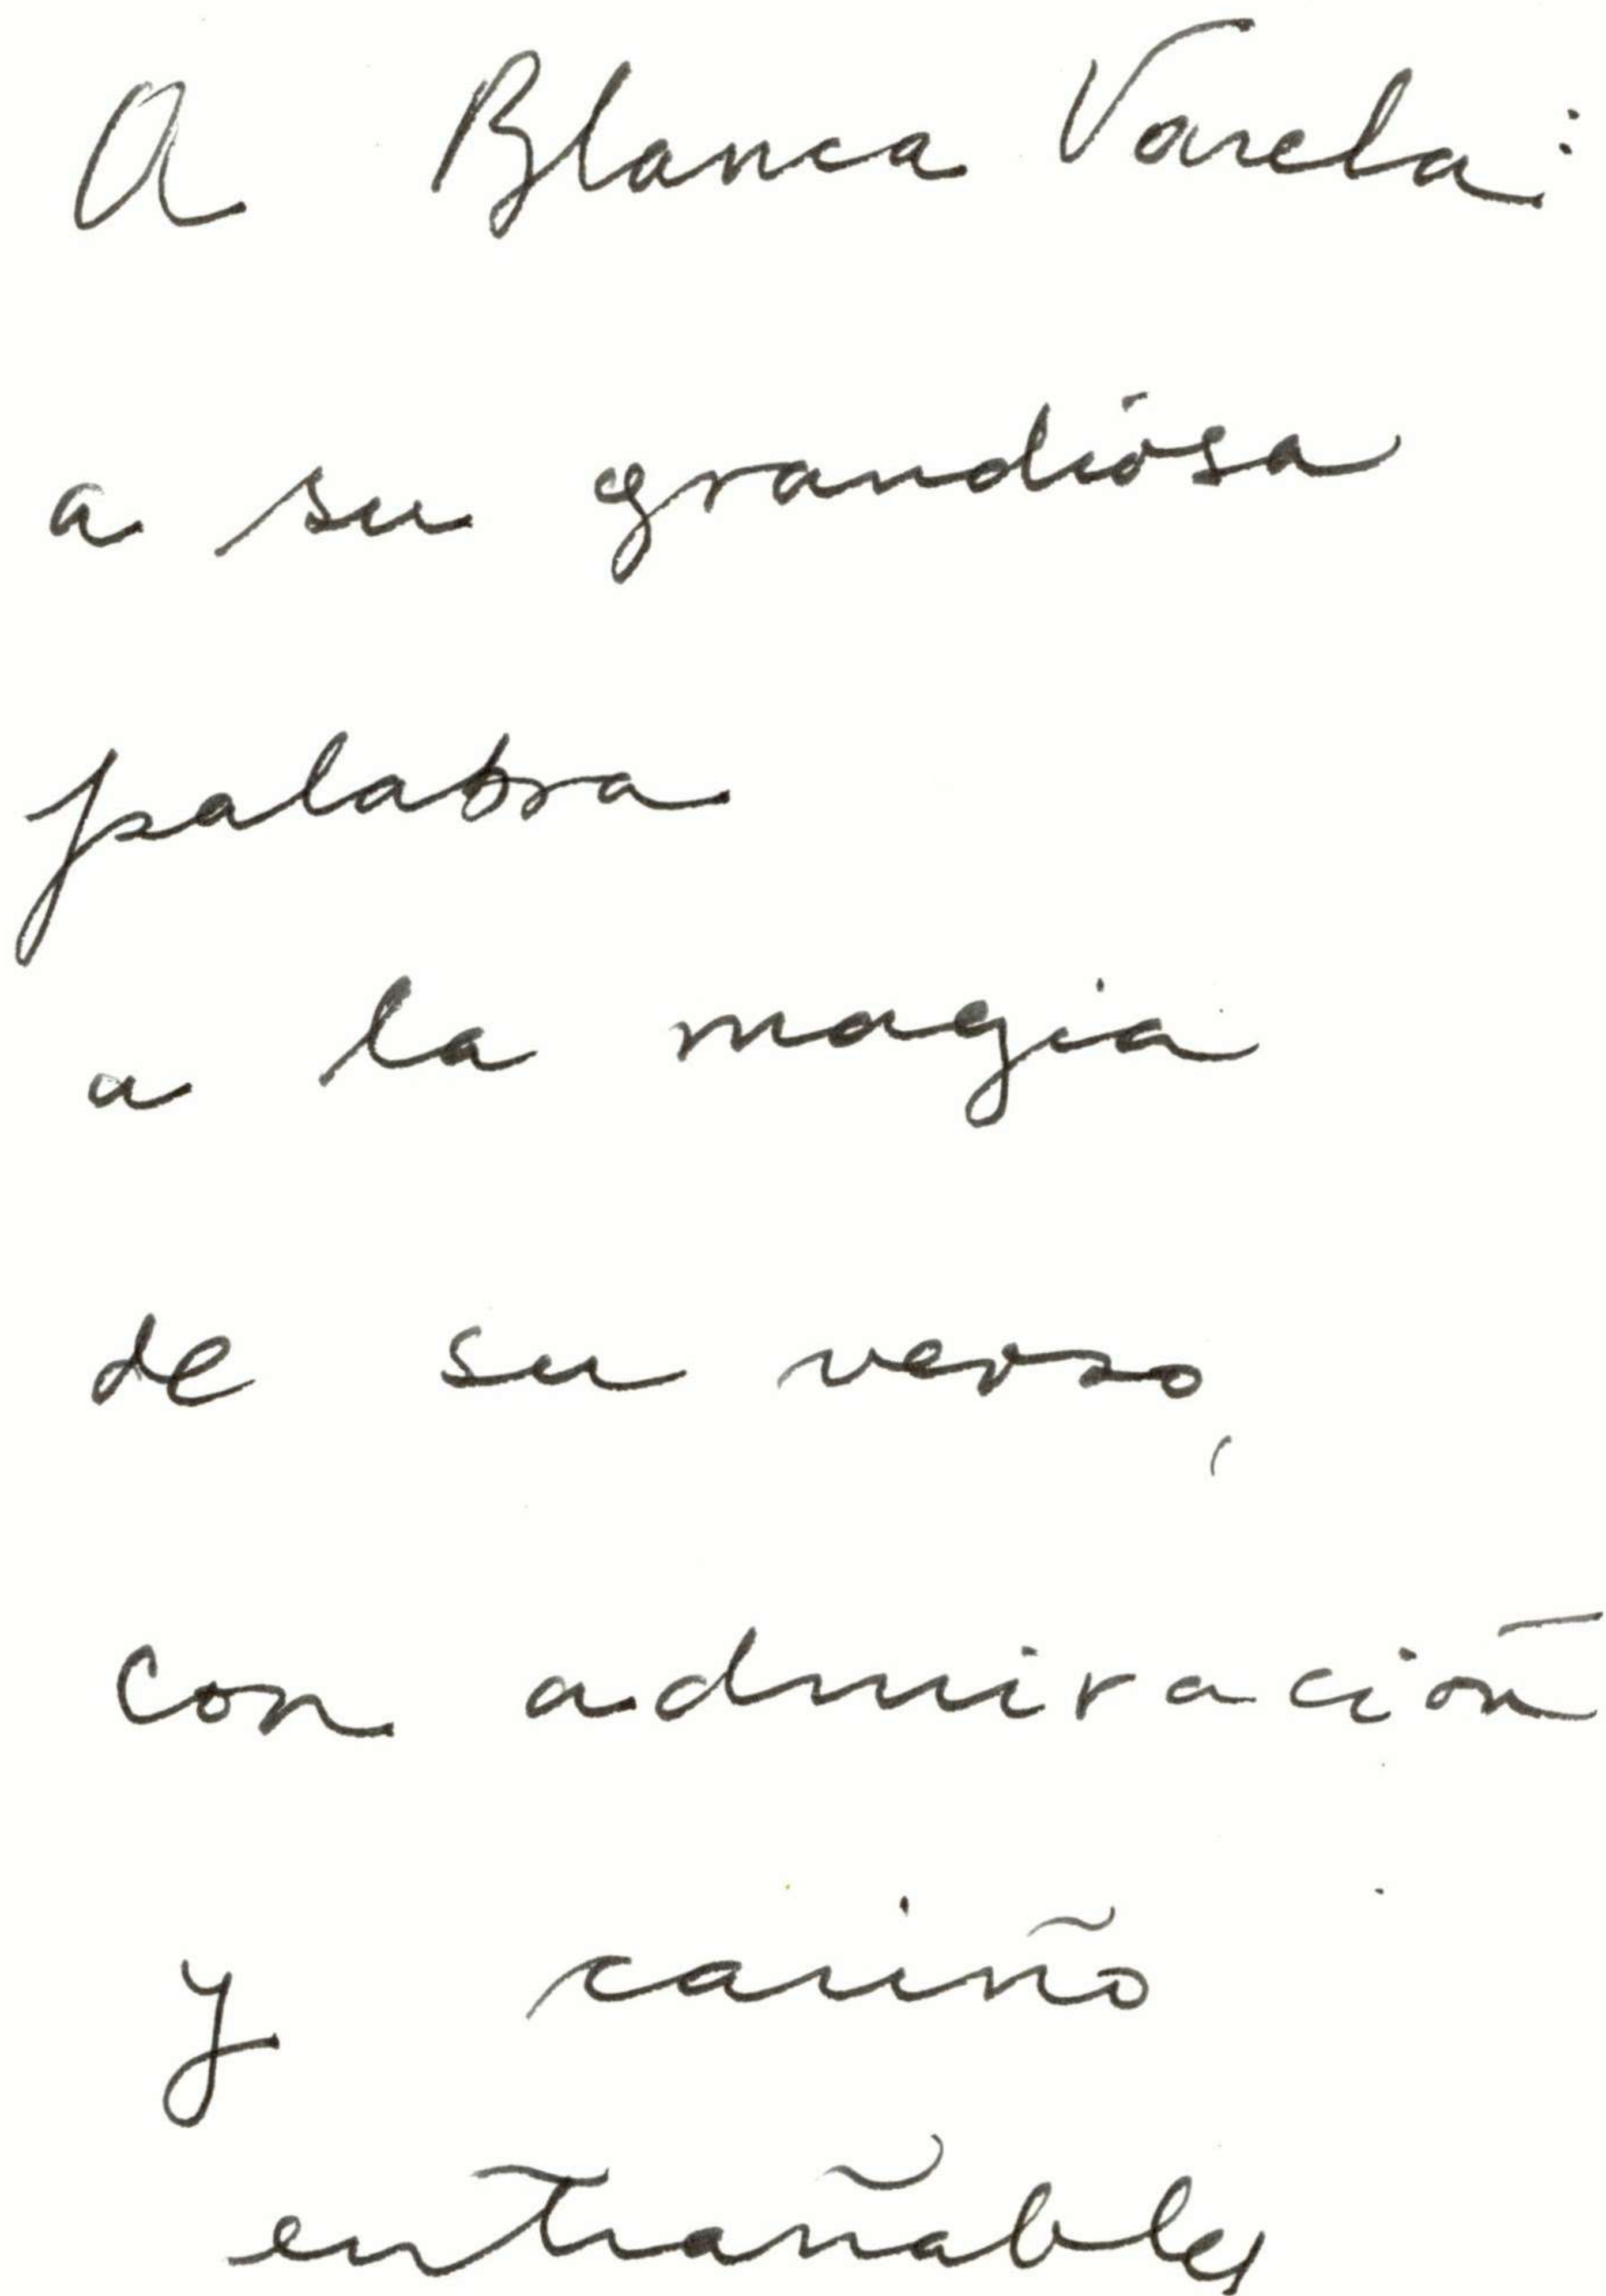 A Blanca Varela:
a su grandiosa
palabra
a la magia
de su verso,
con admiración
y cariño
entrañables